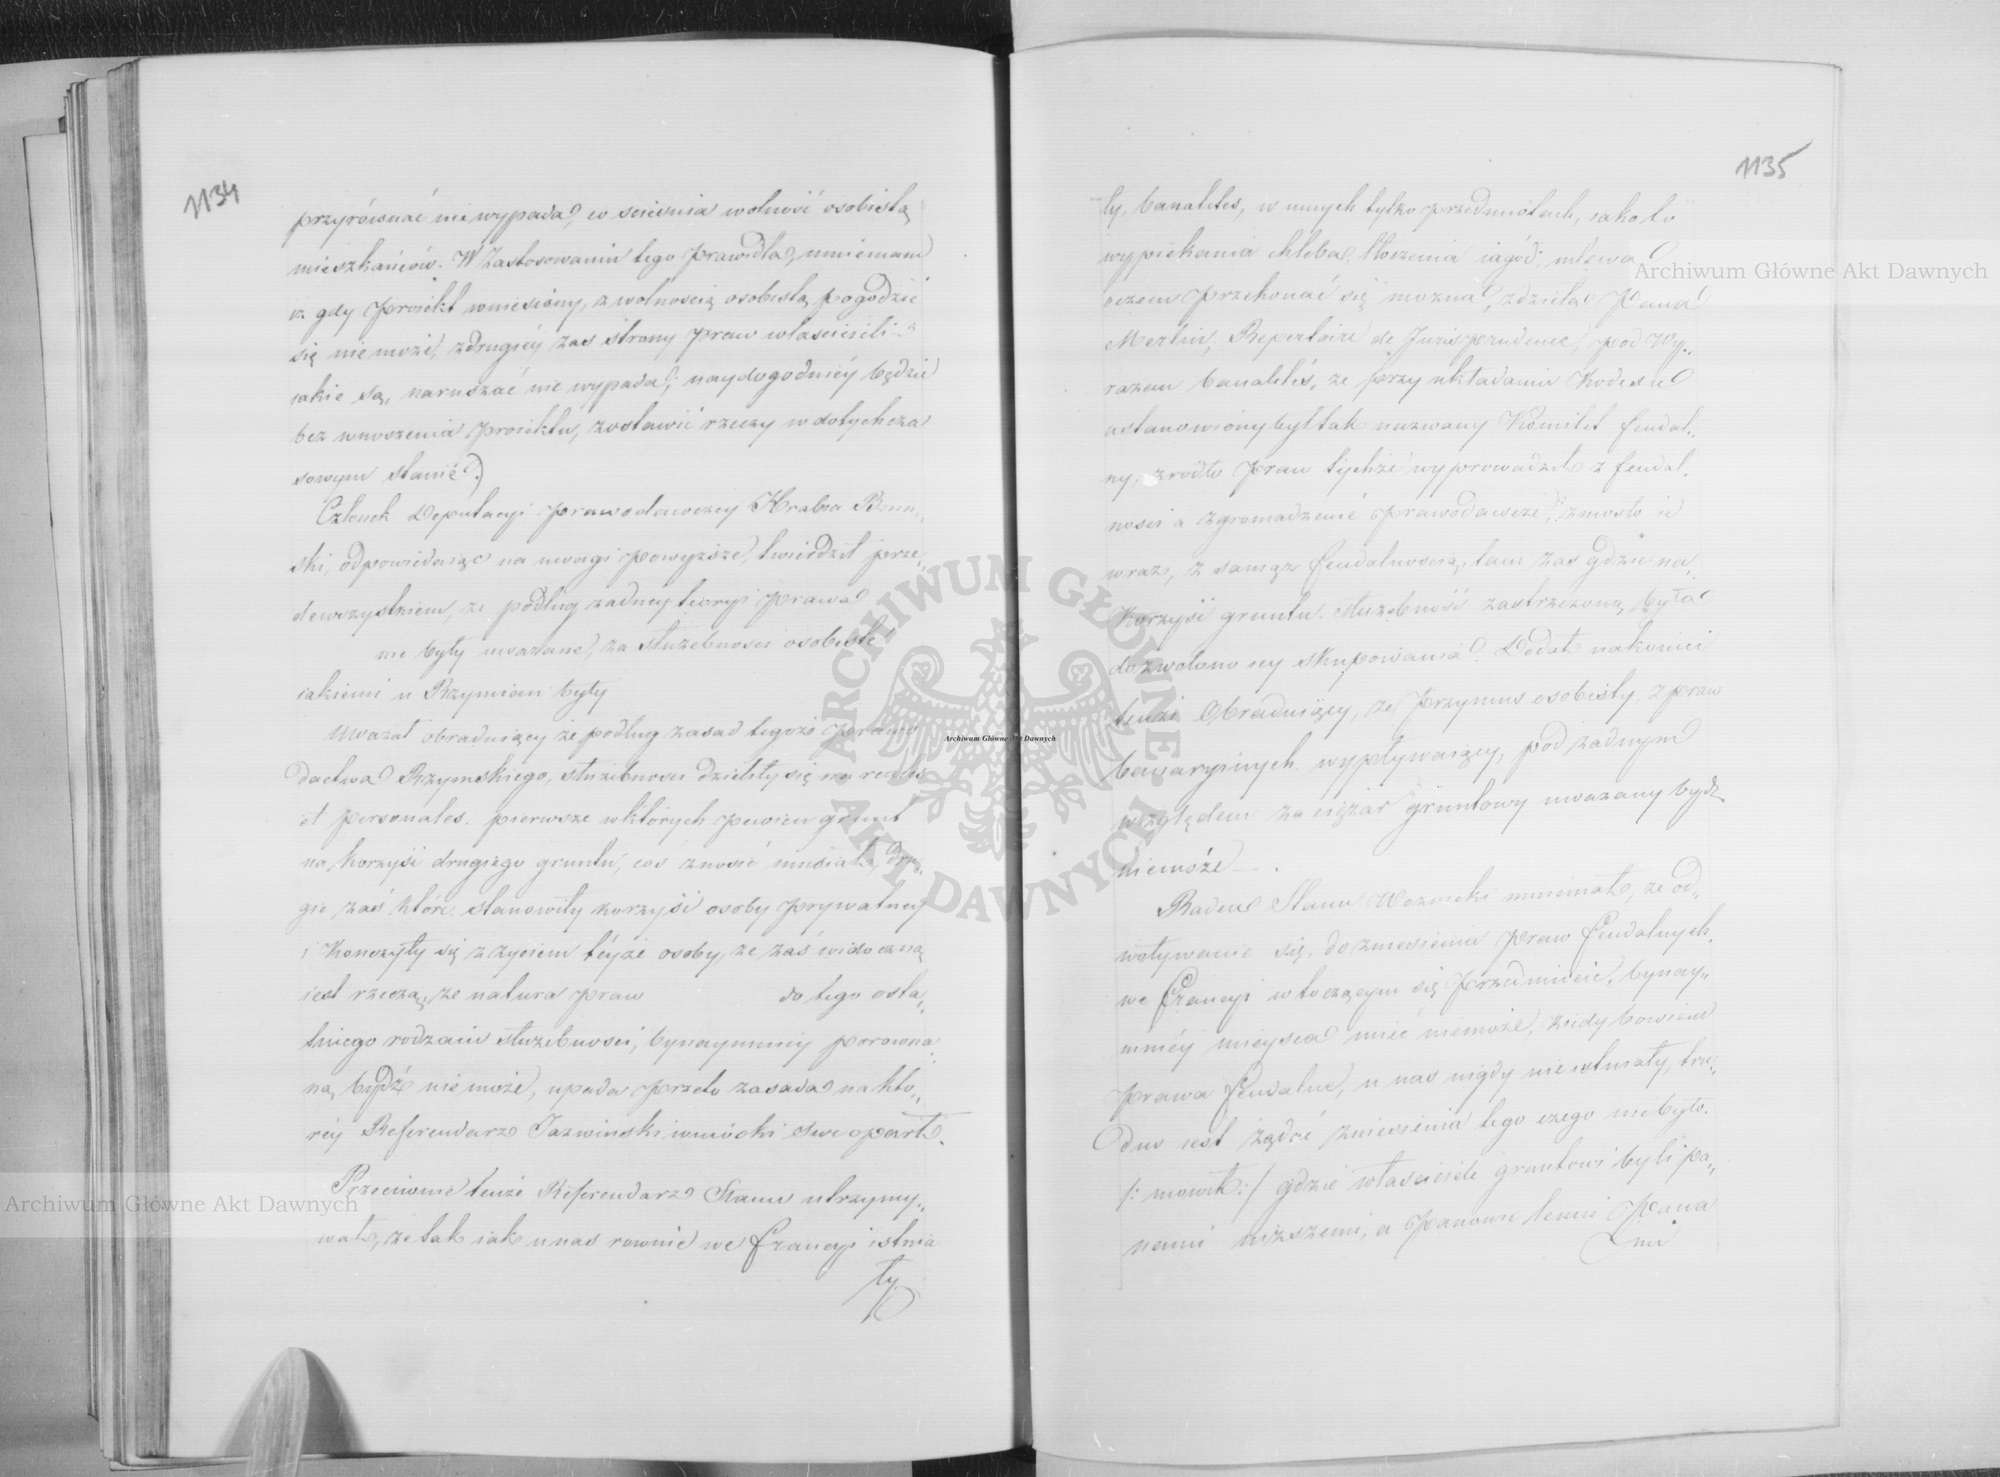 1134
przyrównać nie wypada, co scieśnia wolność osobistą
mieszkańców. W zastosowaniu tego prawidła, mniemam
iż gdy projekt wniesiony, z wolnością osobistą pogodzić
się niemoże, zdrugiéy zaś strony praw właścicieli
iakie są, naruszać nie wypada; naydogodniéy będzie
bez wnoszenia projektu, zostawić rzeczy w dotychcza
sowym stanie.)
Członek Deputacyi prawodawczey Hrabia Bniń„
ski, odpowiedaiąc na uwagi powyższe, twierdził prze„
dewszystkiem, że podług żadney teoryi prawa
nie były uważane, za służebności osobiste
iakiemi u Rzymian były
Uważał obraduiący że podług zasad tegoż prawo
dactwa Rzymskiego, służebności dzieliły się na reales
et personales. pierwsze wktórych pewien grunt
na korzyść drugiego gruntu, coś znosić musiał, dru„
gie zaś które stanowiły korzyść osoby prywatney
i kończyły się z życiem téyże osoby, że zaś widoczną
iest rzeczą, że natura praw do tego osta„
tniego rodzaiu służebności, bynaymniey porowna„
ną bydź nie może, upada przeto zasada na któ„
réy Referendarz Jazwiński wnioski swe oparł.
Przeciwnie tenże Referendarz Stanu utrzymy„
wał, że tak iak u nas rownie we francyi istnia
ły
1135
ły, banalites, w innych tylko przedmiotach, iako to
wypiekania chleba, tłoczenia iagód, mlewa
oczem przekonać się można, zdzieła Pana
Merlin, Repertoire de Jurisprudence, pod Wy„
razem banalités, że przy układaniu Kodexu
ustanowiony był tak nazwany Komitet feudal„
ny, zrodło praw tychże wyprowadził z feudal„
ności a zgromadzenie prawodawcze, zniosło ie
wraz, z samąż feudalnością, tam zaś gdzie na„
korzyść gruntu, służebność zastrzeżoną była
dozwolono iey skupowania. Dodał nakoniec
tenże Obraduiący, że przymus osobisty, z praw
bawaryinych wypływaiący, pod żadnym
względem za ciężar gruntowy uważany bydź
niemoże —.
Radca Stanu Woznicki mniemał, że od„
wolywanie się, do zniesienia praw feudalnych,
we francyi w toczącym się przedmiocie, bynay„
mniéy mieysca mieć niemoże, kiedy bowiem
prawa feudalne, u nas nigdy nie istniały, tru„
dno iest żądać zniesienia tego czego niebyło.
/: mówił :/ gdzie właściciele gruntowi byli pa„
nami niższemi, a Panowie temi Pana
mi
Archiwum Główne Akt Dawnych
Archiwum Główne Akt Dawnych
Archiwum Główne Akt Dawnych
ARCHIWUM GŁÓWNE AKT DAWNYCH